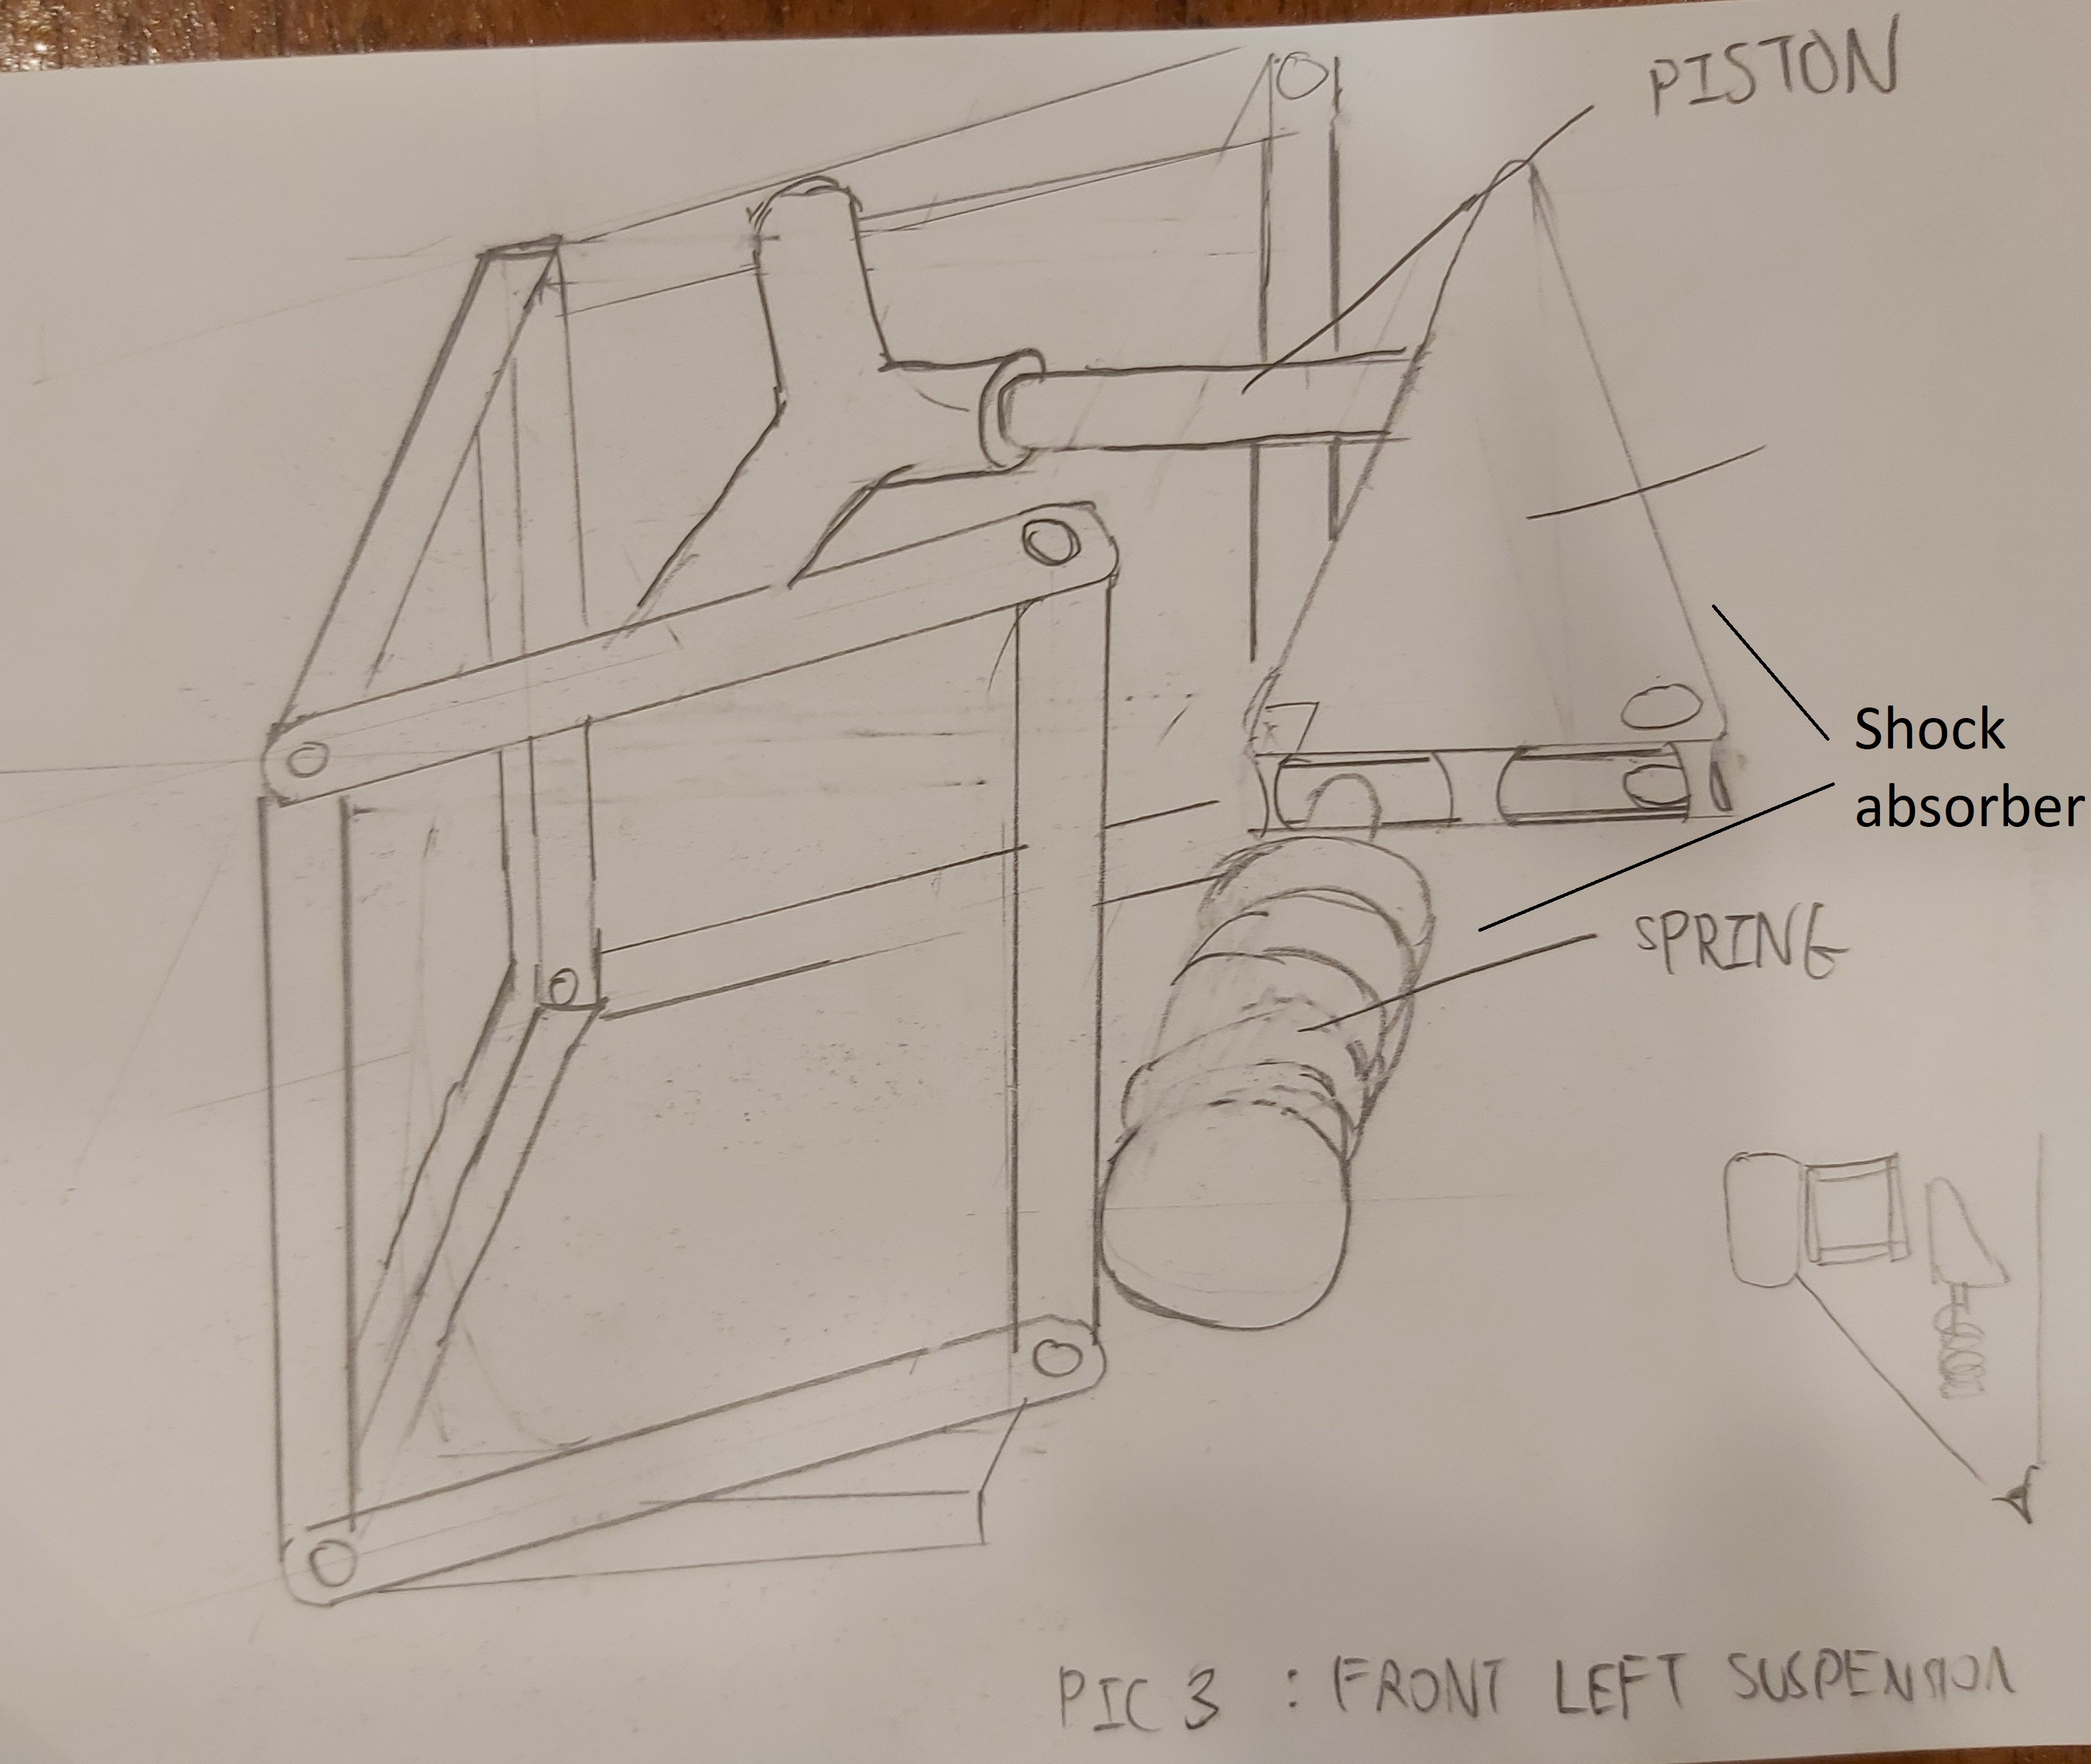 PISTON
Shock
absorber
SPRING
PIC 3 : FRONT LEFT SUSPENSION